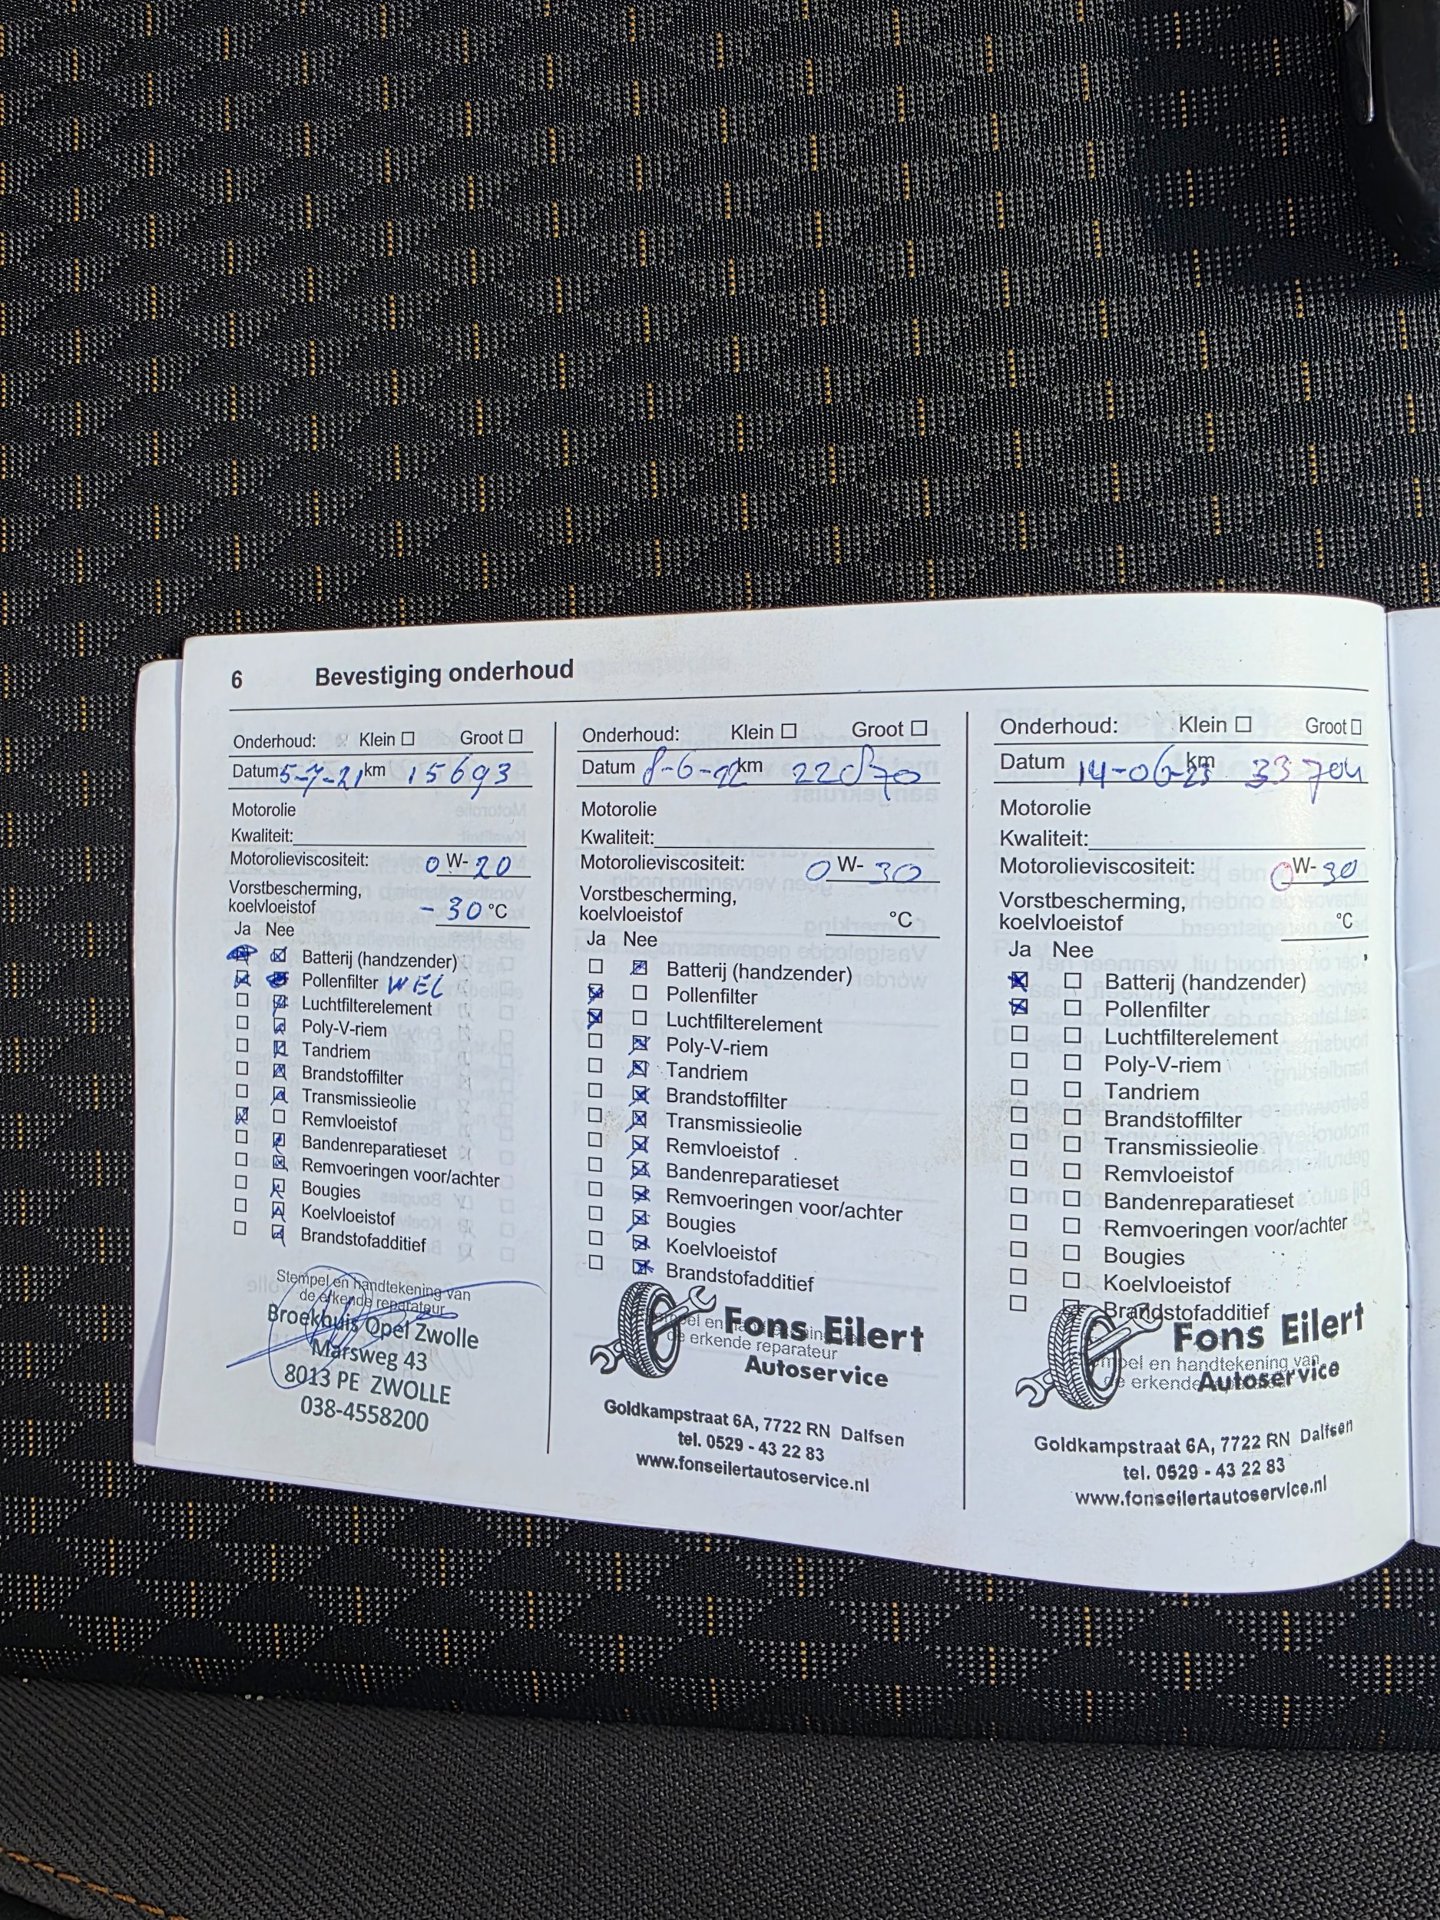 6 Bevestiging onderhoud
Onderhoud: Klein ☐ Groot ☐
Datum 5-7-21 km 15693
Motorolie
Kwaliteit:
Motorolieviscositeit: 0 W- 20
Vorstbescherming,
koelvloeistof - 30 °C
Ja Nee
Batterij (handzender)
Pollenfilter WEL
Luchtfilterelement
Poly-V-riem
Tandriem
Brandstoffilter
Transmissieolie
Remvloeistof
Bandenreparatieset
Remvoeringen voor/achter
Bougies
Koelvloeistof
Brandstofadditief
Stempel en handtekening van
de erkende reparateur
Broekhuis Opel Zwolle
Marsweg 43
8013 PE ZWOLLE
038-4558200
Onderhoud: Klein ☐ Groot ☐
Datum 8-6-22 km 22870
Motorolie
Kwaliteit:
Motorolieviscositeit: 0 W- 30
Vorstbescherming,
koelvloeistof °C
Ja Nee
Batterij (handzender)
Pollenfilter
Luchtfilterelement
Poly-V-riem
Tandriem
Brandstoffilter
Transmissieolie
Remvloeistof
Bandenreparatieset
Remvoeringen voor/achter
Bougies
Koelvloeistof
Brandstofadditief
de erkende reparateur
Fons Eilert
Autoservice
Goldkampstraat 6A, 7722 RN Dalfsen
tel. 0529 - 43 22 83
www.fonseilertautoservice.nl
Onderhoud: Klein ☐ Groot ☐
Datum 14-06-23 km 33704
Motorolie
Kwaliteit:
Motorolieviscositeit: 0 W- 30
Vorstbescherming,
koelvloeistof °C
Ja Nee
Batterij (handzender)
Pollenfilter
Luchtfilterelement
Poly-V-riem
Tandriem
Brandstoffilter
Transmissieolie
Remvloeistof
Bandenreparatieset
Remvoeringen voor/achter
Bougies
Koelvloeistof
Brandstofadditief
Fons Eilert
en handtekening van
de erkende
Autoservice
Goldkampstraat 6A, 7722 RN Dalfsen
tel. 0529 - 43 22 83
www.fonseilertautoservice.nl